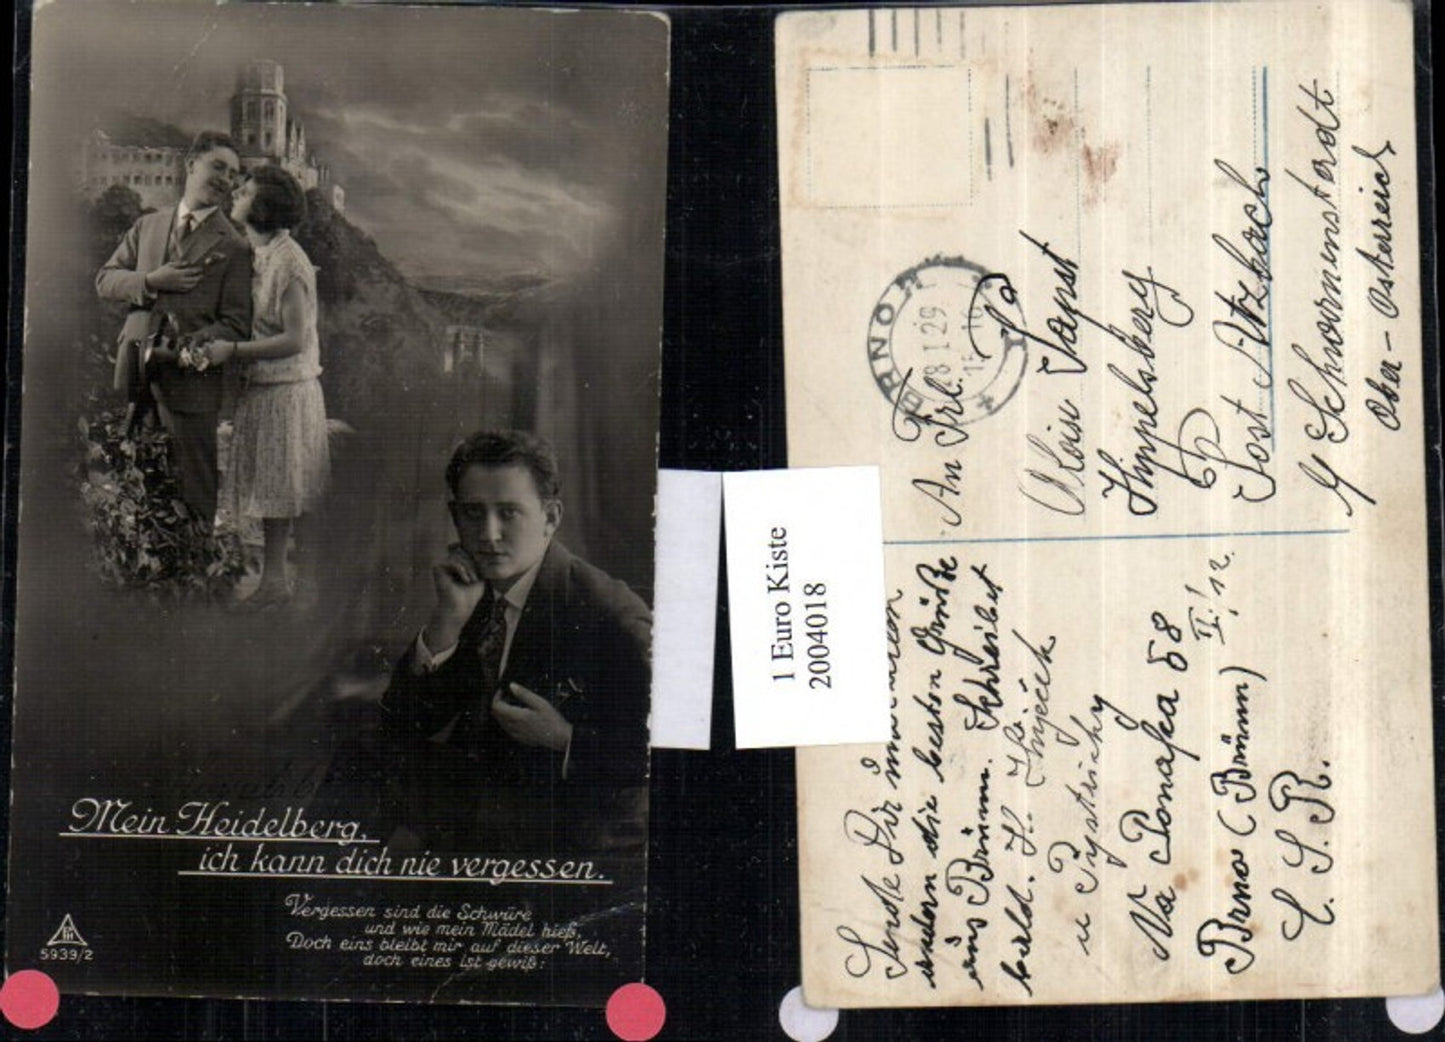 Mein Heidelberg,
ich kann dich nie vergessen.
Vergessen sind die Schwüre
und wie mein Mädel hieß,
Doch eins bleibt mir auf dieser Welt,
doch eines ist gewiß:
5939/2
1 Euro Kiste
2004018
BRNO
28 I 29
An Frl.
Aloisi
Hippelsberg
Post Atzbach
Schwannenstadt
Ober-Österreich
Sende Dir und allen
andern die besten Grüße
aus Brünn. Schreibet
bald. H.
u
Na 58
II./12.
Brno (Brünn)
Č. S. R.